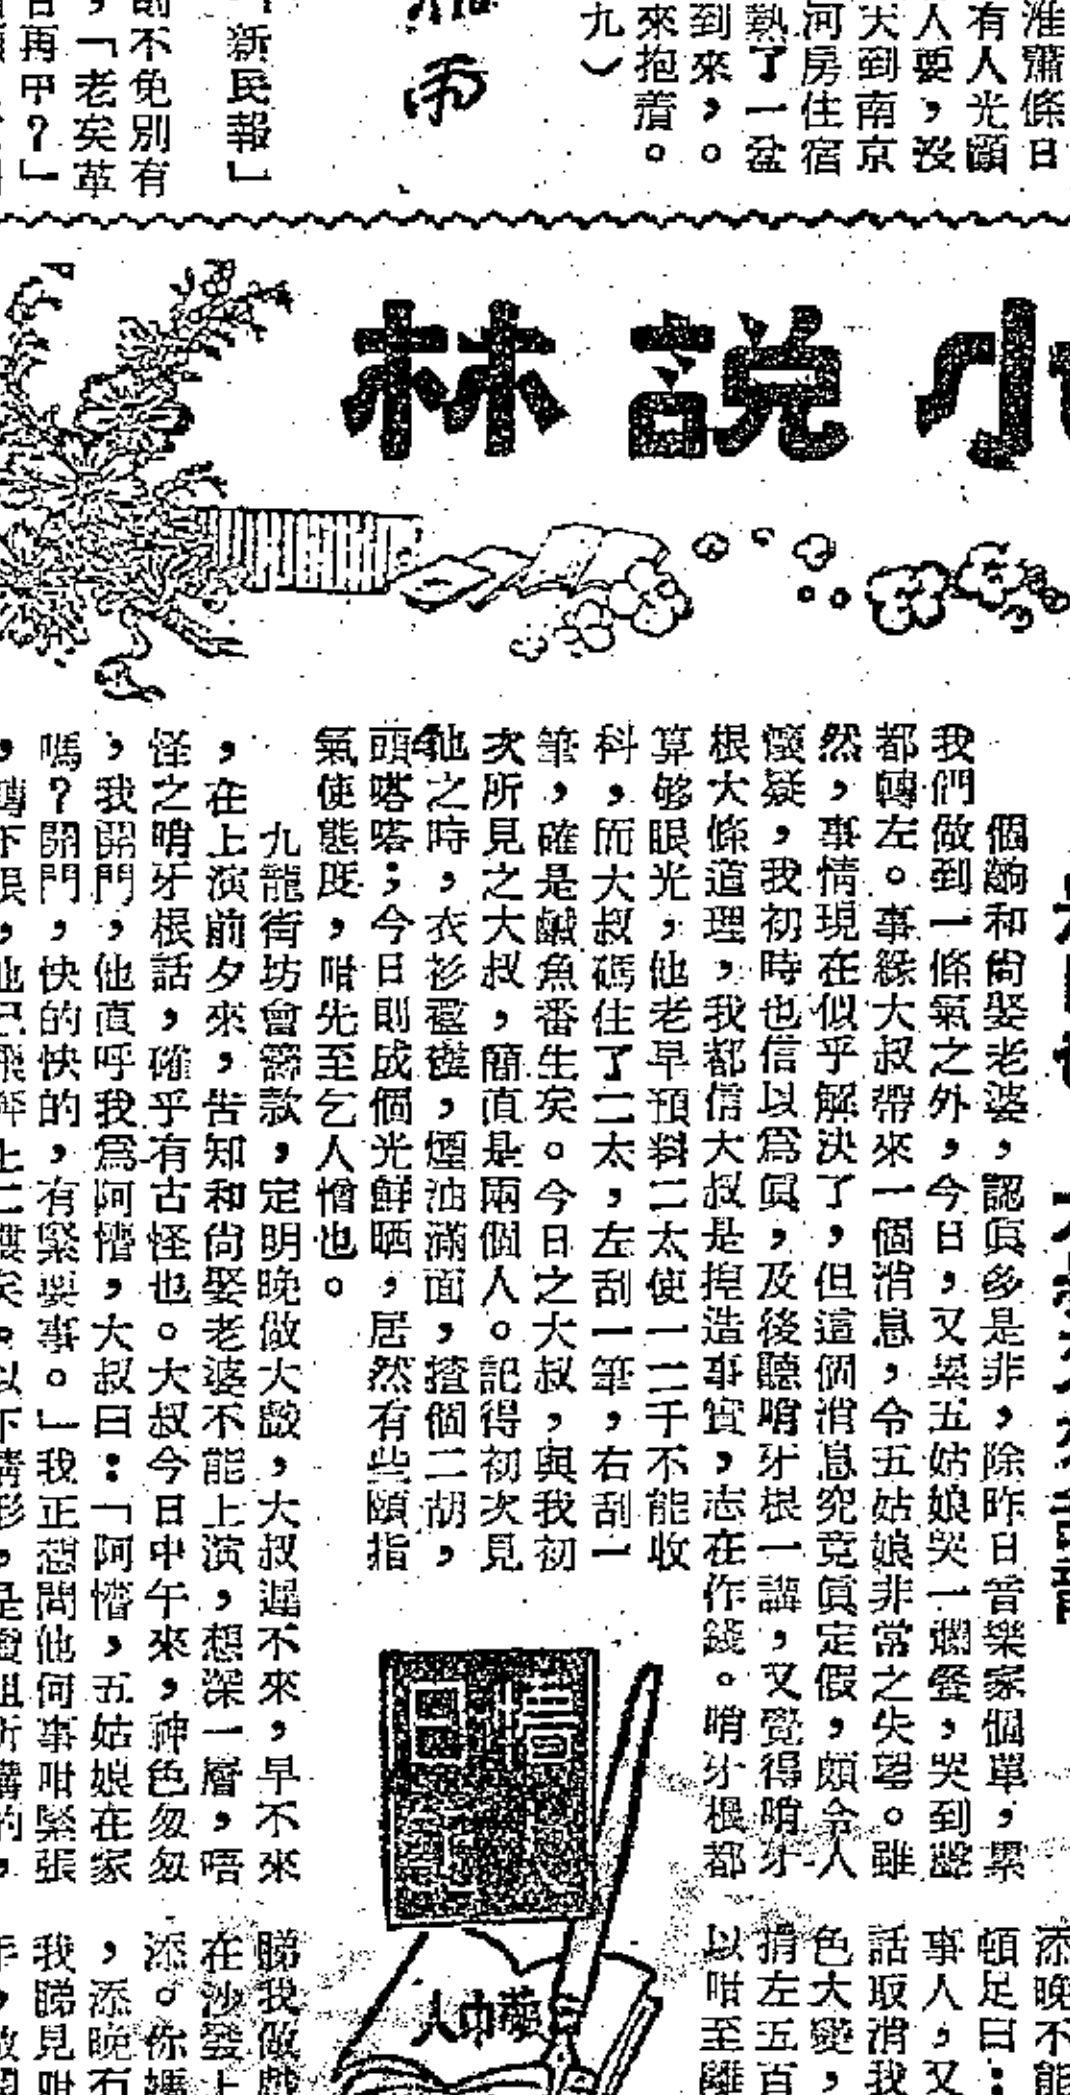 淮蕭條日
有人光顧
人要，沒
天到南京
河房住宿
熱了一盆
到來，。
來抱着。
九）
雨
「新民報」
不免別有
，「老矣革
再甲？」
小說林
個齣和尙娶老婆，認眞多是非，除昨日音樂家個單，累
我們做到一條氣之外，今日，又累五姑娘哭一爛餐，哭到
都轉左。事緣大叔帶來一個消息，令五姑娘非常之失望。雖
然，事情現在似乎解決了，但這個消息究竟眞定假，頗令人
懷疑，我初時也信以爲眞，及後聽哨牙根一講，又覺得哨牙
根大條道理，我都信大叔是揑造事實，志在作錢。哨牙根都
算够眼光，他老早預料二太使一二千不能收
科，而大叔碼住了二太，左刮一筆，右刮一
筆，確是鹹魚番生矣。今日之大叔，與我初
次所見之大叔，簡直是兩個人。記得初次見
他之時，衣衫襤褸，煙油滿面，揸個二胡，
頭嗒嗒；今日則成個光鮮晒，居然有些頤指
氣使態度，咁先至乞人憎也。
九龍街坊會籌款，定明晚做大戲，大叔遲不來，早不來
，在上演前夕來，告知和尙娶老婆不能上演，想深一層，唔
怪之哨牙根話，確乎有古怪也。大叔今日中午來，神色匆匆
，我開門，他直呼我爲阿懵，大叔曰：「阿懵，五姑娘在家
嗎？開門，快的快的，有緊要事。」我正想問他何事咁緊張
夢中人
添晚不能
頓足曰：
事人，又
話取消我
色大變，
捐左五百
以咁至難
睇我做戲
在沙發上
添。你媽
，添晚冇
我睇見咁